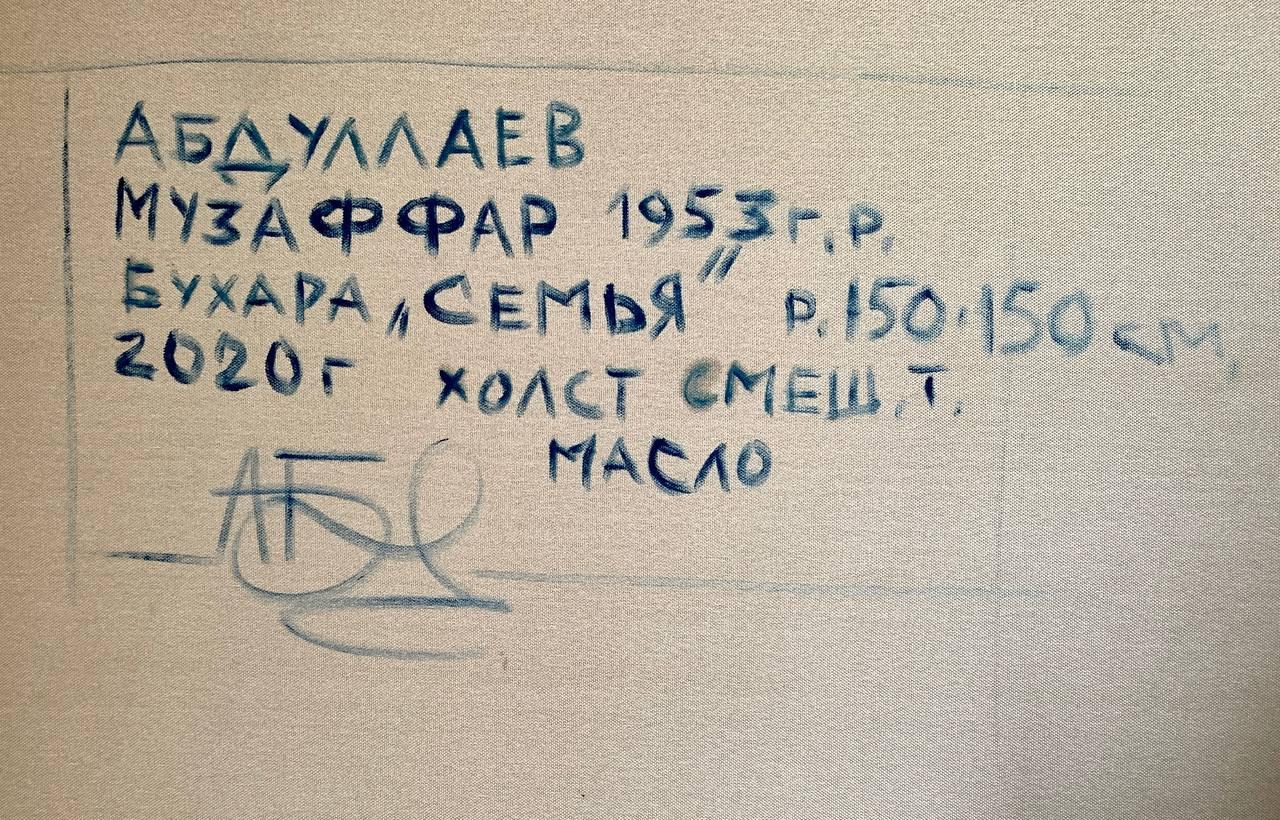 АБДУЛЛАЕВ
МУЗАФФАР 1953 г.р.
БУХАРА „СЕМЬЯ" р. 150·150 см,
2020 г ХОЛСТ СМЕШ.Т.
МАСЛО